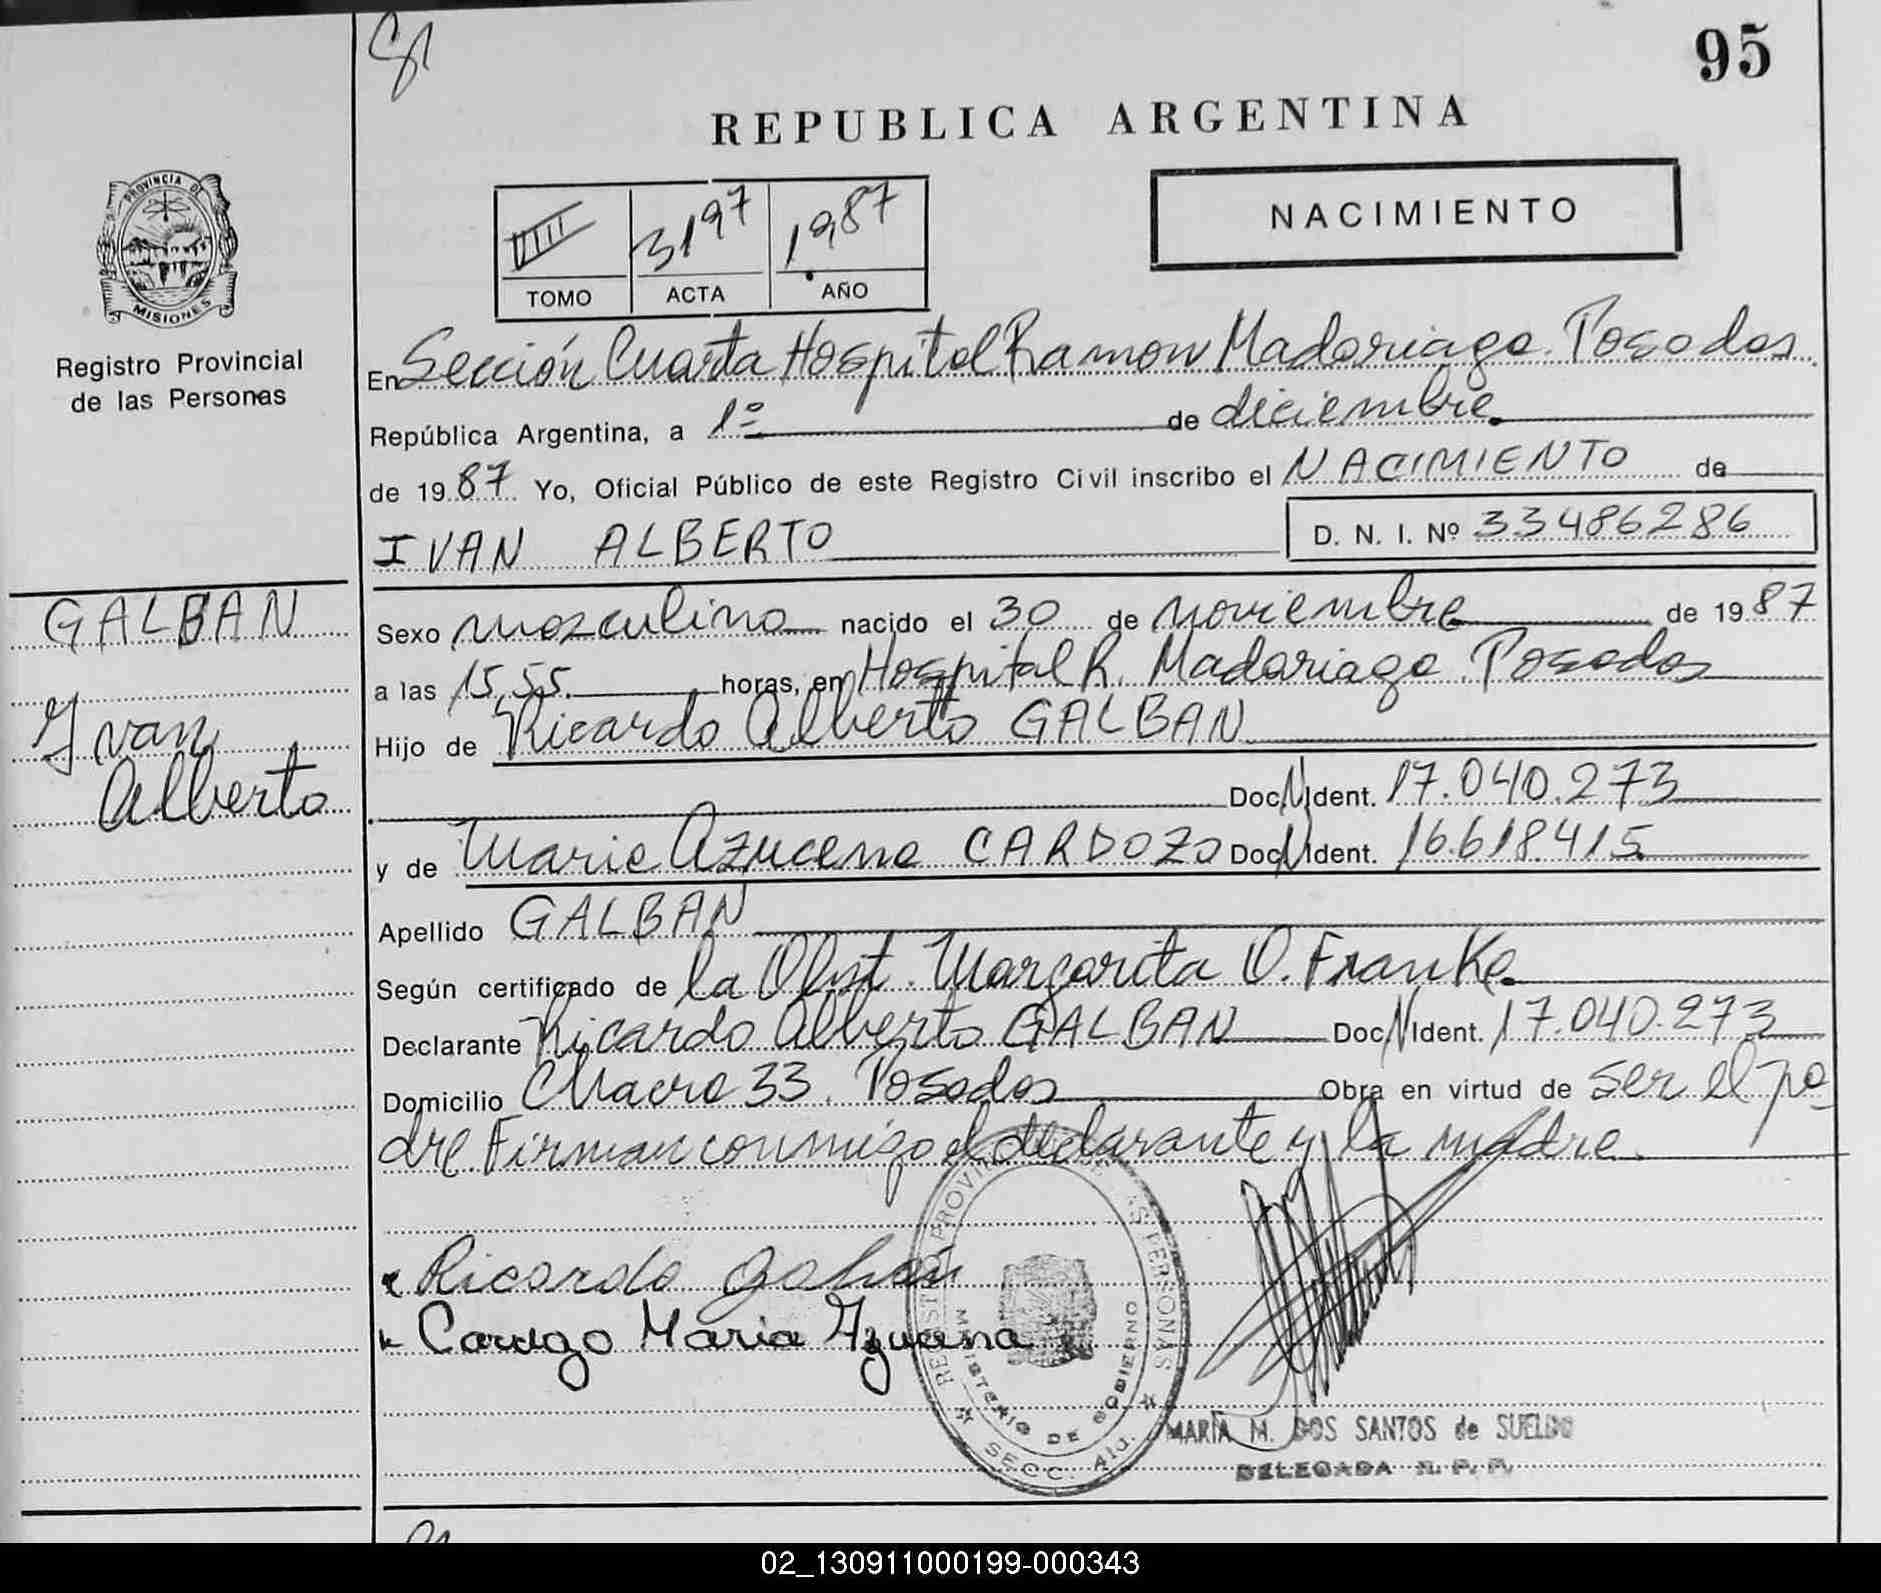 95
REPUBLICA ARGENTINA
PROVINCIA DE
MISIONES
Registro Provincial
de las Personas
3197 1987
TOMO ACTA AÑO
NACIMIENTO
En Sección Cuarta Hospital Ramon Madariaga. Posadas
República Argentina, a 1º de diciembre
de 1987 Yo, Oficial Público de este Registro Civil inscribo el NACIMIENTO de
IVAN ALBERTO D. N. I. Nº 33486286
GALBAN
Ivan
Alberto
Sexo masculino nacido el 30 de noviembre de 1987
a las 15,55. horas, en Hospital R. Madariaga. Posadas
Hijo de Ricardo Alberto GALBAN
Doc N Ident. 17.040.273
y de Maria Azucena CARDOZO Doc N Ident. 16.618.415
Apellido GALBAN
Según certificado de la Obst. Margarita O. Franke
Declarante Ricardo Alberto GALBAN Doc N Ident. 17.040.273
Domicilio Chacra 33. Posadas Obra en virtud de ser el pa
dre. Firman conmigo el declarante y la madre.
Ricardo Galban
Maria
REGISTRO PROVINCIAL DE LAS PERSONAS
MINISTERIO DE GOBIERNO
SECC. 4ta.
MARIA M. DOS SANTOS de SUELDO
DELEGADA R. P. P.
02_130911000199-000343